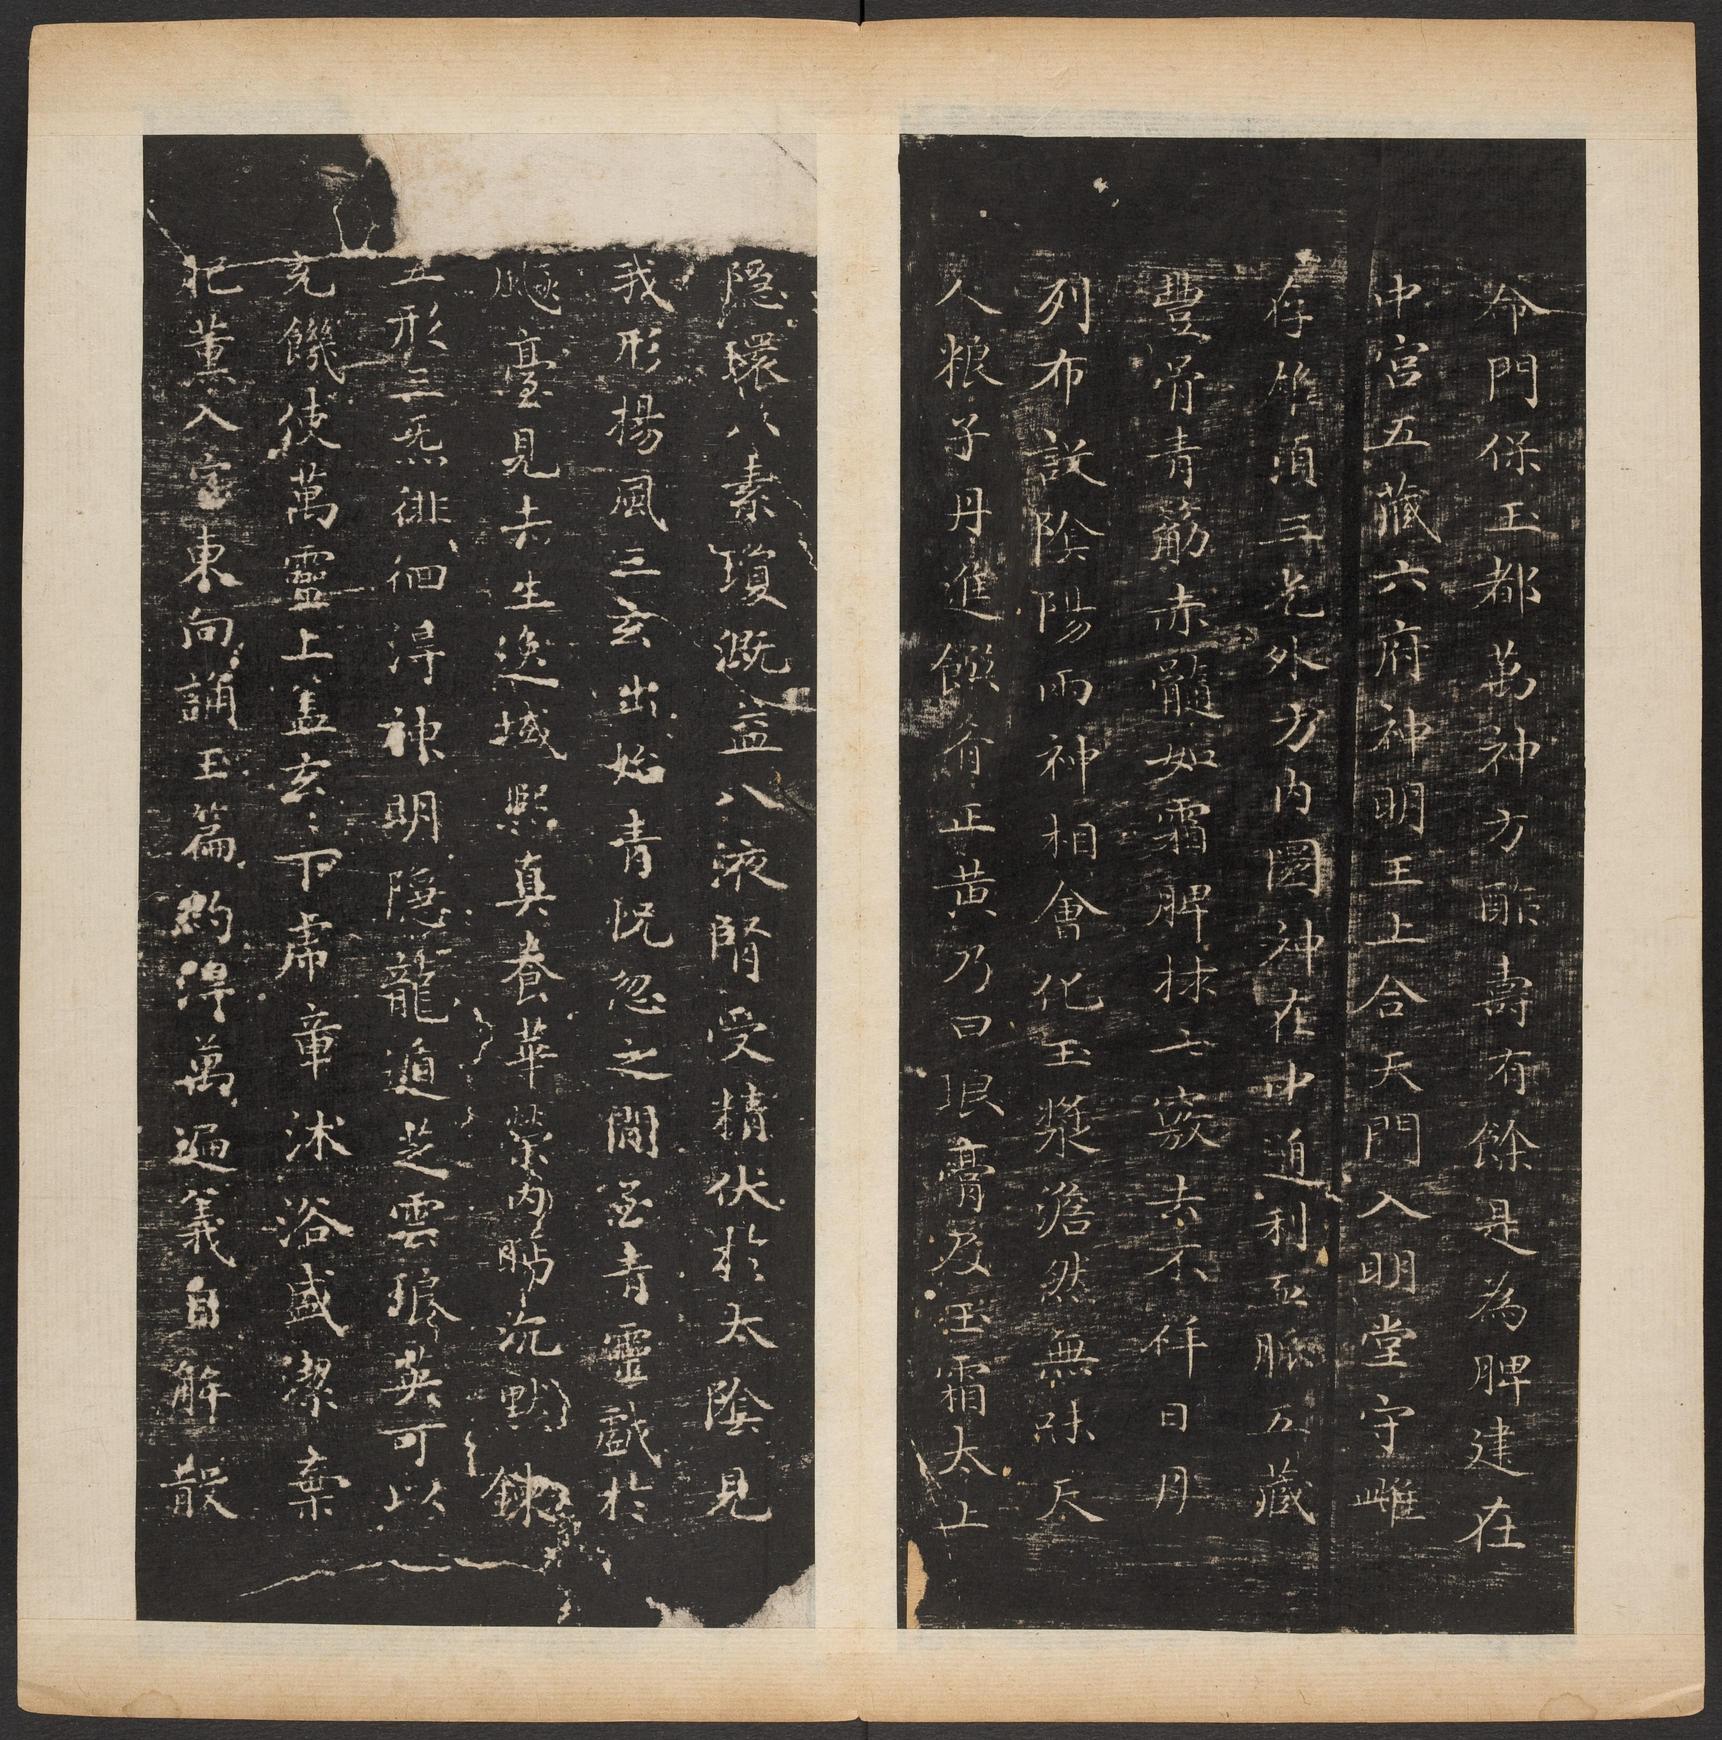 命門保玉都萬神方酢壽有餘是為脾建在
中宮五藏六府神明王上合天門入明堂守雌
存雄頂三光外方內圓神在中通利血脈五藏
豐骨青筋赤髓如霜脾捄七竅去不祥日月
列布設陰陽兩神相會化玉漿澹然無味天
人粮子丹進饌肴正黃乃曰琅膏及玉霜太上
隱環八素瓊溉益八液腎受精伏於太陰見
我形揚風三玄出始青恍忽之間至青靈戲於
飈臺見赤生逸域熙真養華榮內盻沉默鍊
五形三炁徘徊得神明隱龍遁芝雲琅英可以
充饑使萬靈上蓋玄玄下虎章沐浴盛潔棄
肥薰入室東向誦玉篇約得萬遍義自解散